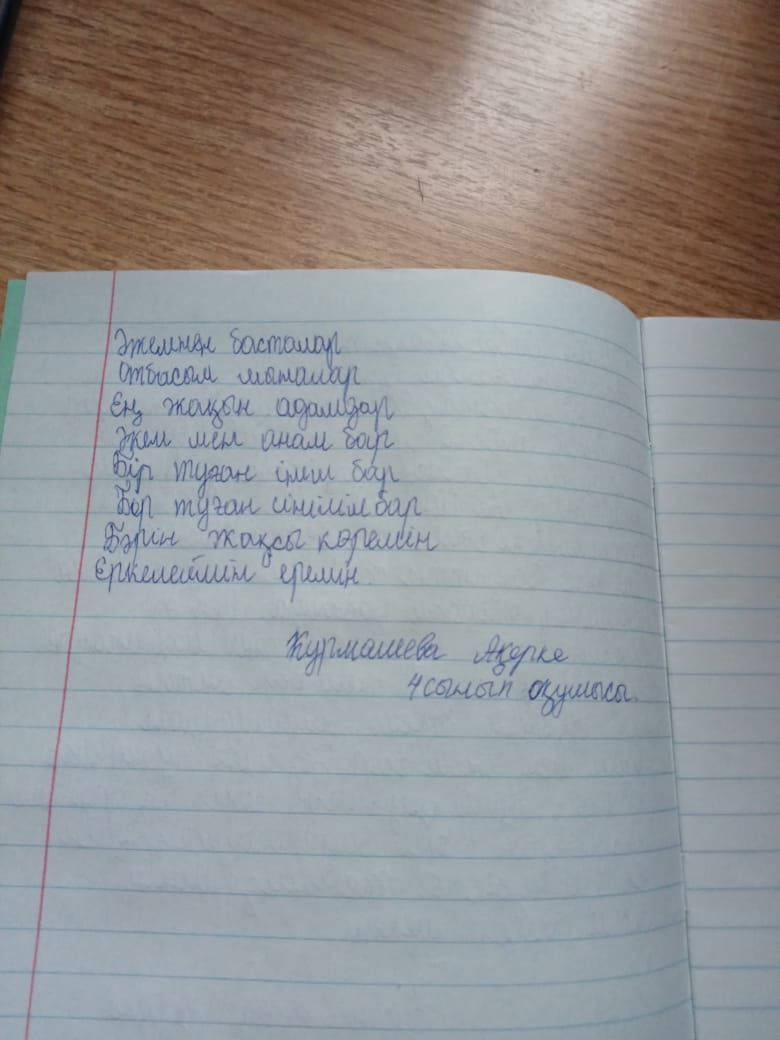 Әкемнен басталар
Отбасым мыналар
Ең жақын адамдар
Әкем мен анам бар
Бір туған інім бар
Бір туған сіңілім бар
Бәрін жақсы көремін
Еркелеймін еремін
Курмашева Ақерке
4 сынып оқушысы.